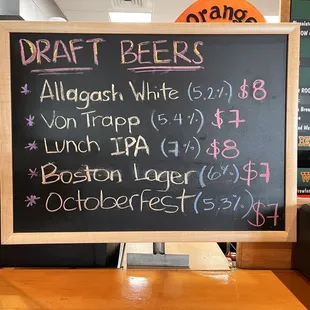 Orange
DRAFT BEERS
* Allagash White (5.2%) $8
* Von Trapp (5.4%) $7
* Lunch IPA (7%) $8
* Boston Lager (6%) $7
* Octoberfest (5.3%) $7